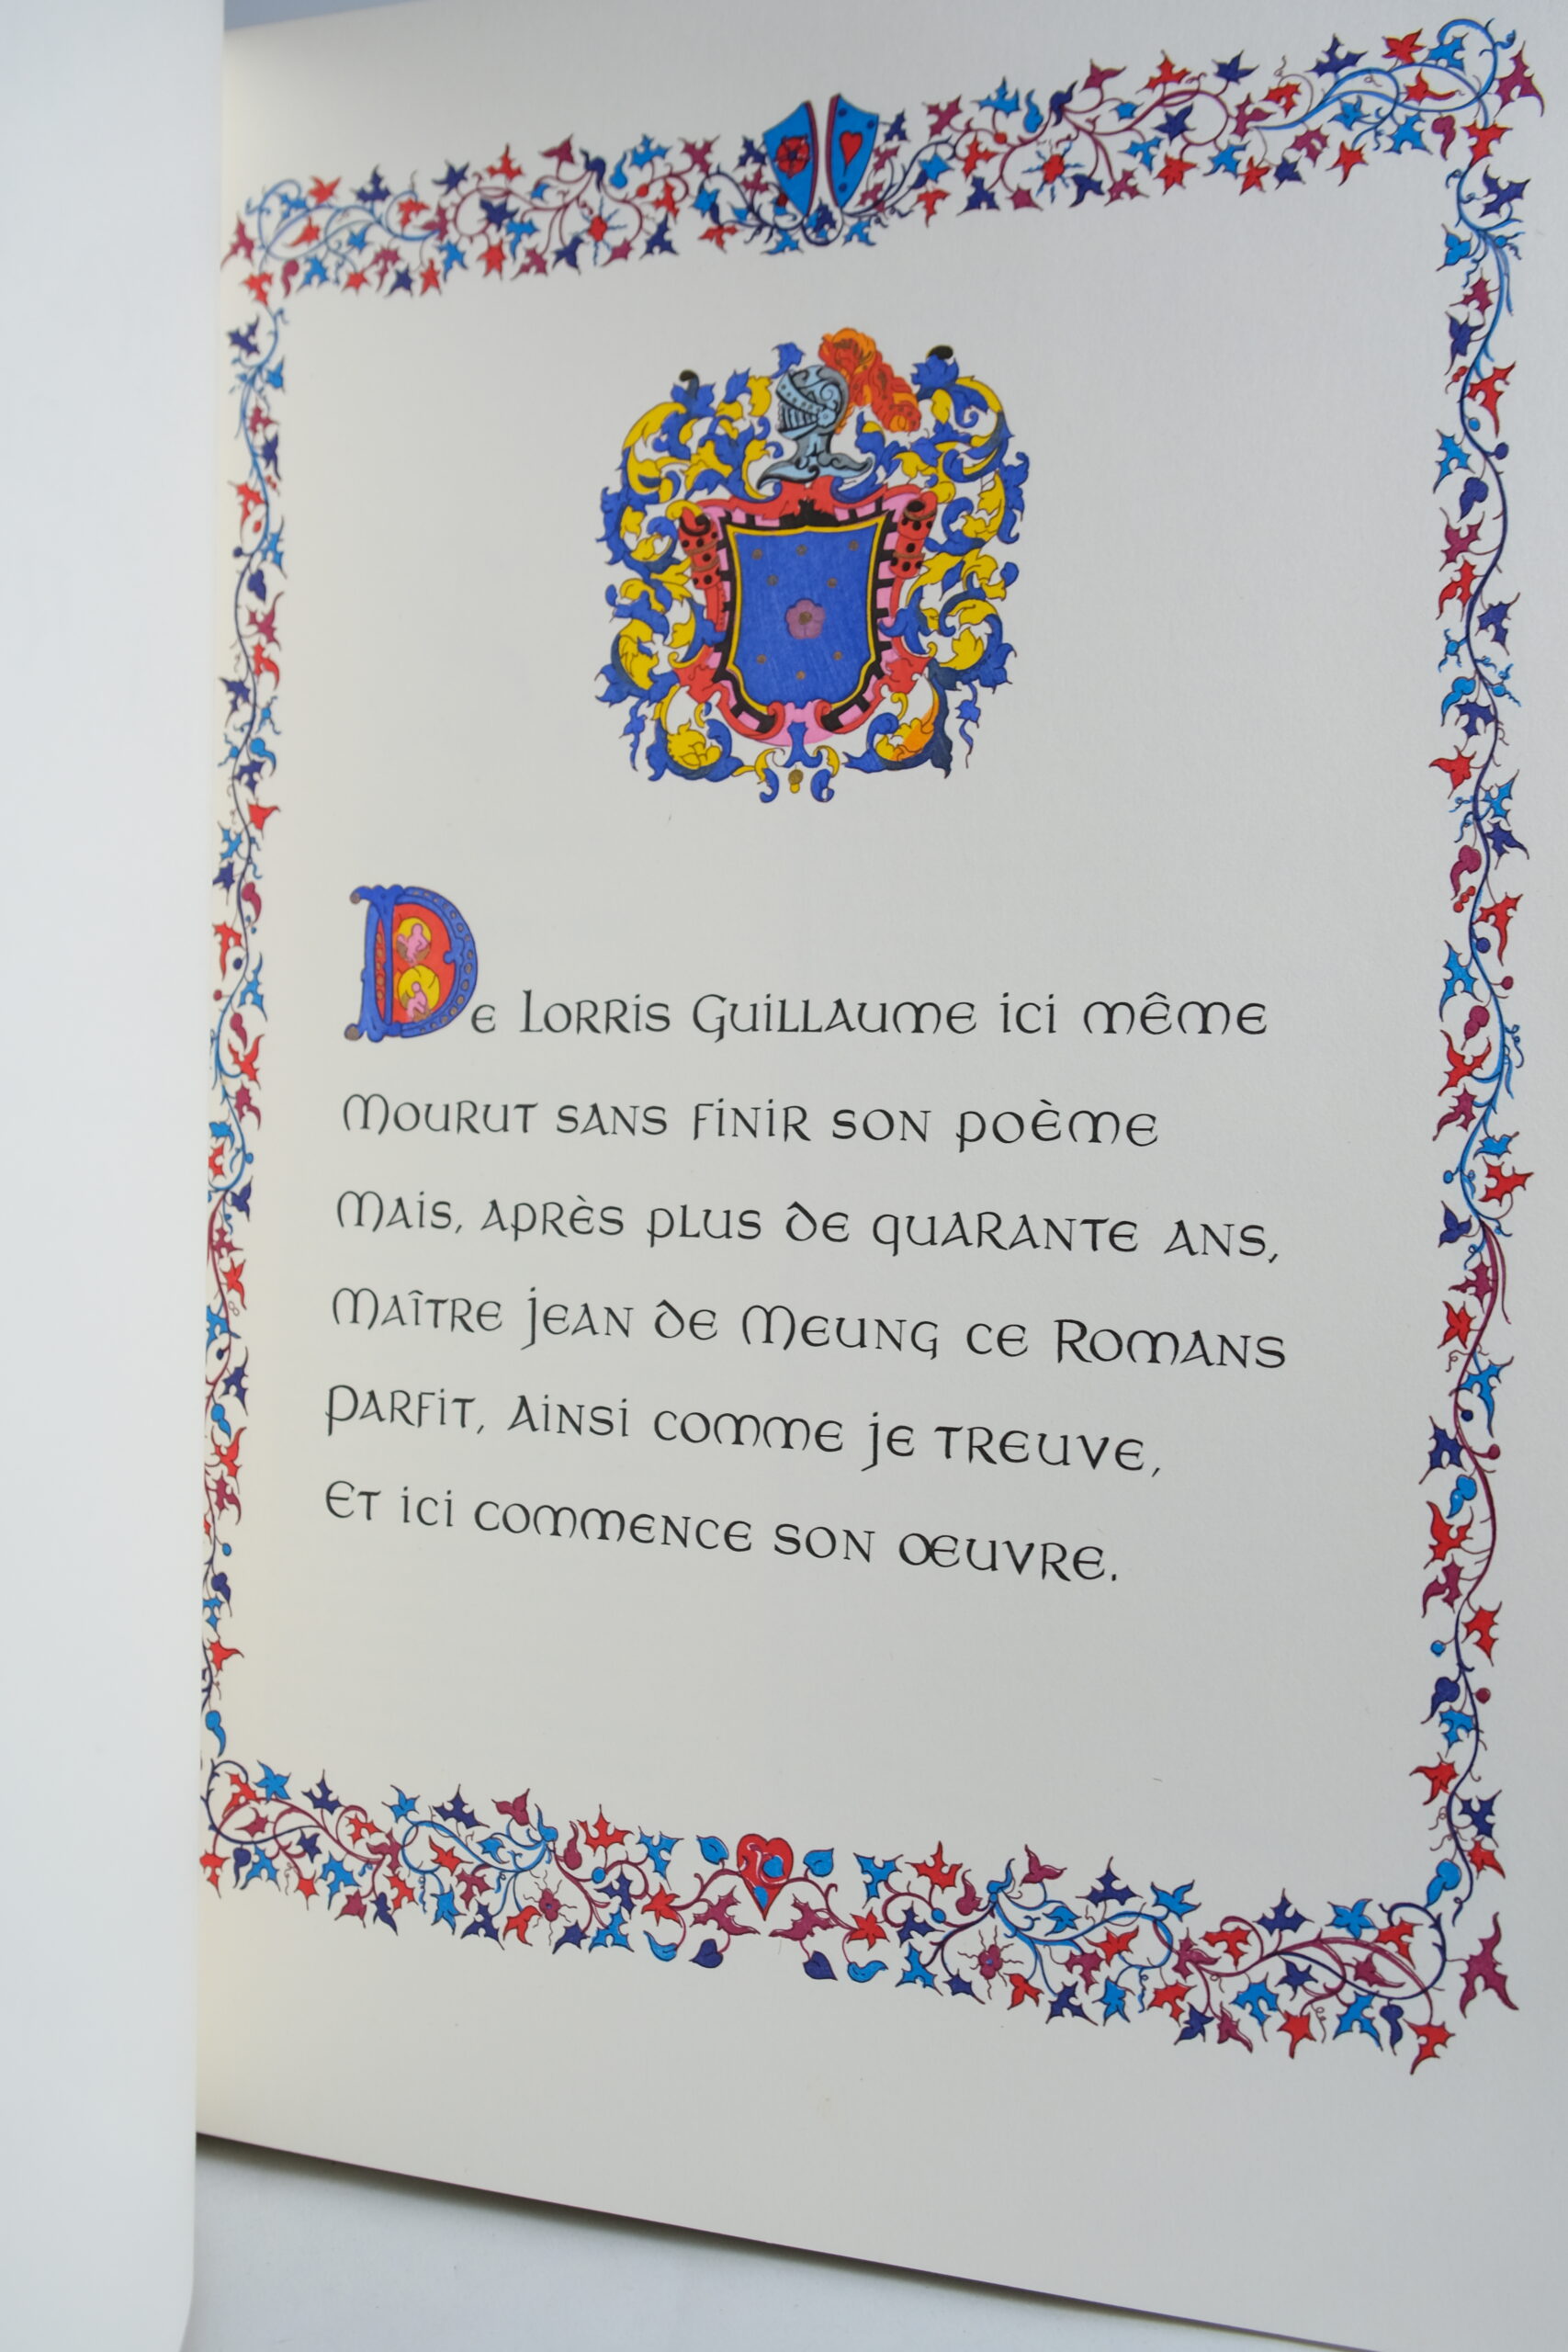 De Lorris Guillaume ici même
mourut sans finir son poème
mais, après plus de quarante ans,
maître jean de Meung ce Romans
parfit, ainsi comme je treuve,
Et ici commence son œuvre.